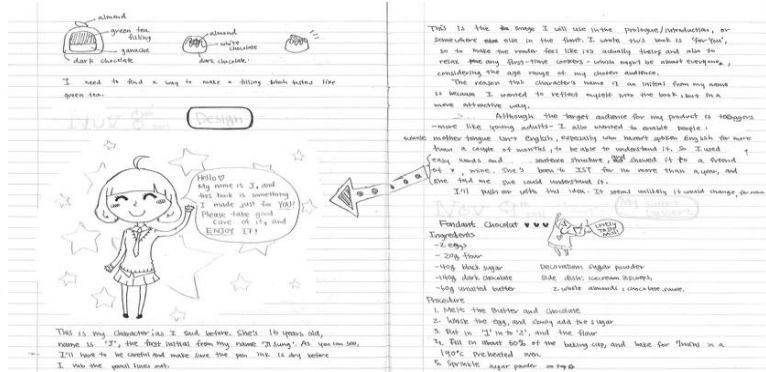 almond
green tea
filling
ganache
dark chocolate
almond
white
chocolate
dark chocolate.
I need to find a way to make a filling which tastes like
green tea.
Nov 8th
Design
Hello ♡
My name is J, and
this book is something
I made just for YOU!
Please take good
care of it, and
ENJOY IT!
This is my character (as I said before. She's 16 years old,
name is 'J', the first initial from my name 'Ji sung'. As you can see,
I'll have to be careful and make sure the pen ink is dry before
I rub the pencil lines out.
This is the image I will use in the prologue/introduction, or
somewhere else in the front. I wrote this book is 'for You',
so to make the reader feel like its actually theirs and also to
relax any first-time cookers - which might be almost everyone,
considering the age range of my chosen audience.
The reason this character's name is an initial from my name
is because I wanted to reflect myself into the book, but in a
more attractive way.
Although the target audience for my product is teenagers
-more like young adults- I also wanted to enable people,
whose mother tongue isn't English, especially who haven't spoken English for more
than a couple of months, to be able to understand it. So I used
easy words and sentence structure, showed it to a friend
of mine. She's been to IST for no more than a year, and
she told me she could understand it.
I'll push on with this idea. It seems unlikely it would change for now.
Nov 9th
My sweet
Fondant Chocolat ♥ ♥ ♥
Ingredients
-2 eggs
- 20g flour
-40g black sugar
-140g dark chocolate
-60g unsalted butter
Decoration: sugar powder
Side dish: icecream 2scoops,
2 whole almonds, chocolate sauce.
Procedure
1. Melt the butter and chocolate
2. Whisk the egg, and slowly add the sugar
3. Put in '1' into '2', and the flour
4. Fill in about 60% of the baking cup, and bake for 7mins in a
190°c preheated oven.
5. Sprinkle sugar powder on top